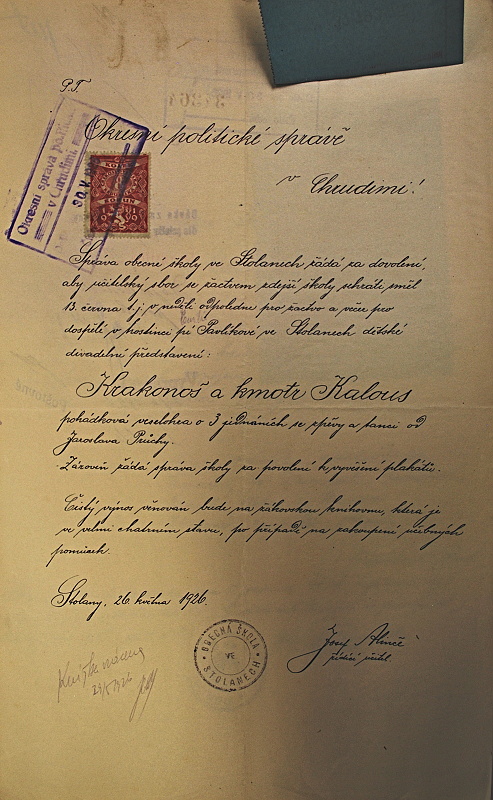 P.T.
Okresní politické správě
v Chrudimi!
Okresní správa politická
v Chrudimi.
5
Správa obecné školy ve Stolanech žádá za dovolení,
aby učitelský sbor se žactvem zdejší školy sehráti směl
13. června t. j. v neděli odpoledne pro žactvo a večer pro
dospělé v hostinci pí Pavlíkové ve Stolanech dětské
divadelní představení:
Krakonoš a kmotr Kalous
pohádková veselohra o 3 jednáních se zpěvy a tanci od
Jaroslava Průchy.
Zároveň žádá správa školy za povolení k vyvěšení plakátů.
Čistý výnos věnován bude na žákovskou knihovnu, která je
ve velmi chatrném stavu, po případě na zakoupení učebných
pomůcek.
Stolany, 26. května 1926.
OBECNÁ ŠKOLA
VE
STOLANECH
Josef
řídící učitel.